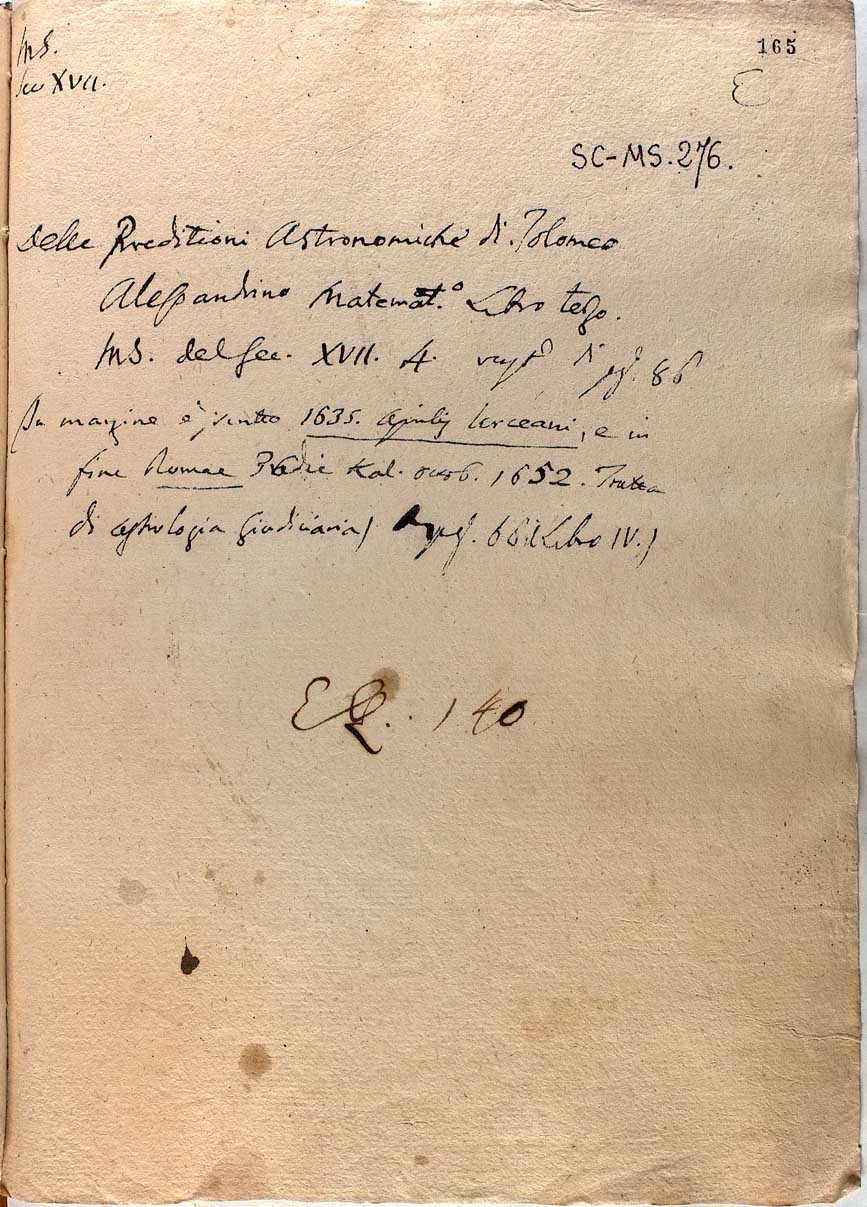 MS.
Sec XVII.
165
E
SC-MS.276.
Delle Preditioni Astronomiche di Tolomeo
Alessandrino Matemat.º Libro terzo.
MS. del Sec. XVII. 4. di pag. 86
In margine è scritto 1635. Aprilis, e in
fine Romae die Kal. octob. 1652. Tratta
di astrologia giudiciaria) pag. 66 il Libro IV.)
140